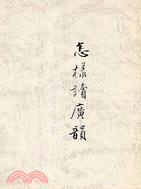 怎樣讀廣韻